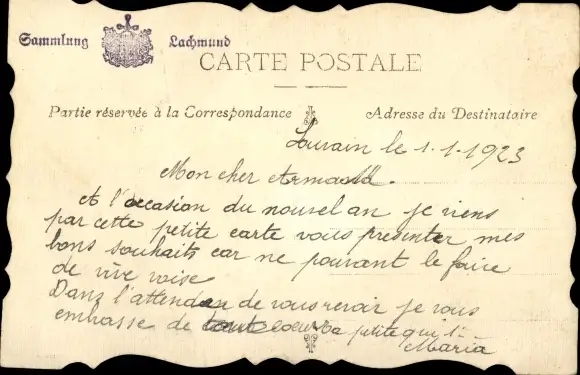 Sammlung Lachmund
CARTE POSTALE
Partie réservée à la Correspondance
Adresse du Destinataire
Louvain le 1.1.1923
Mon cher Armand.
A l'occasion du nouvel an je viens
par cette petite carte vous présenter mes
bons souhaits car ne pouvant le faire
de vive voise
Dans l'attenden de vous revoir je vous
embrasse de tout coeur ta petite qui t
Maria